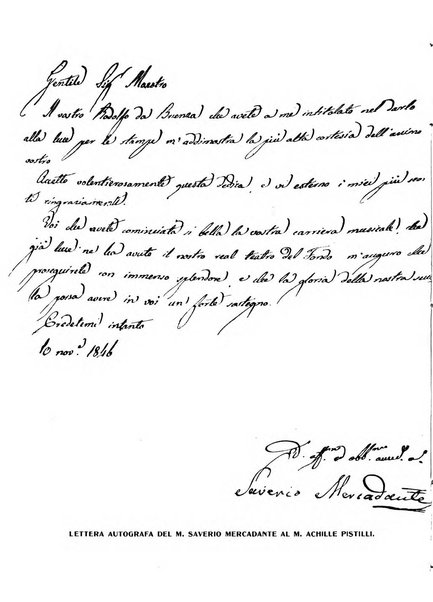 Gentile Sig.r Maestro
Il vostro Rodolfo da Brienza che avete a me intitolato nel darlo
alla luce per le stampe m'addimostra la più alta cortesia dell'animo
vostro
Accetto volentierosamente questa Dedica, e vi esterno i miei più sen
titi ringraziamenti.
Voi che avete cominciata sì bella la vostra carriera musicale, che
già luce ne ha avuto il nostro real teatro del Fondo m'auguro che
proseguirete con immenso splendore, e che la gloria della nostra scuo
la possa avere in voi un forte sostegno.
Credetemi intanto
10 nov.e 1846
Saverio Mercadante
LETTERA AUTOGRAFA DEL M. SAVERIO MERCADANTE AL M. ACHILLE PISTILLI.